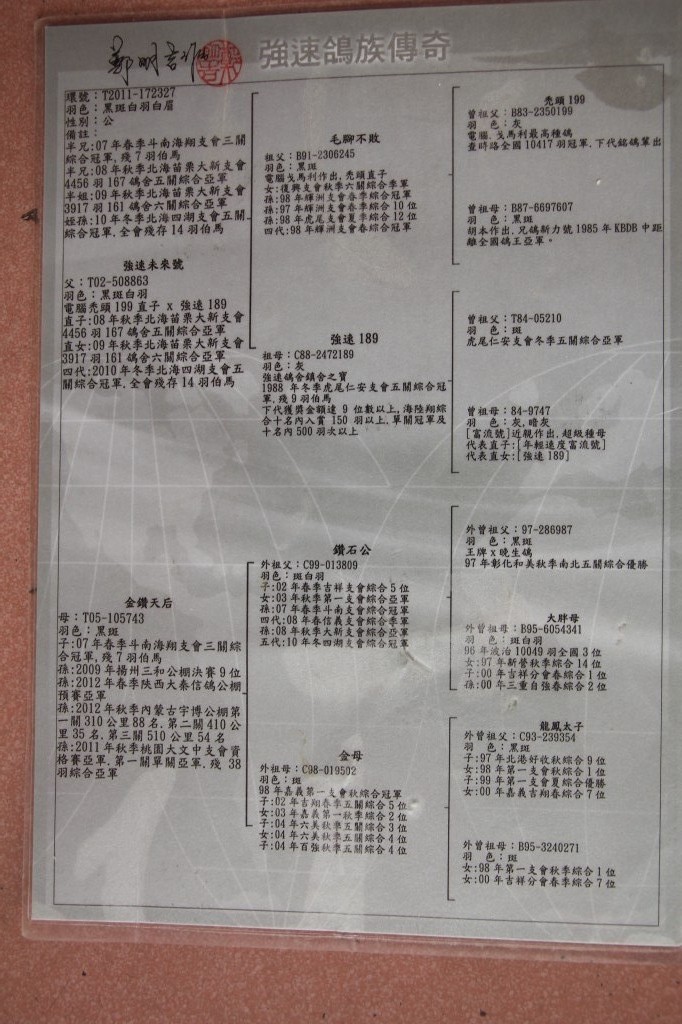 強速鴿族傳奇
環號：T2011-172327
羽色：黑斑白羽白眉
性別：公
備註：
半兄:07年春季斗南海翔支會三關
綜合冠軍,殘7羽伯馬
半兄:08年秋季北海苗栗大新支會
4456羽167鴿舍五關綜合亞軍
半姐:09年秋季北海苗栗大新支會
3917羽161鴿舍六關綜合亞軍
姪孫:10年冬季北海四湖支會五關
綜合冠軍,全會殘存14羽伯馬
強速未來號
父：T02-508863
羽色：黑斑白羽
電腦禿頭199直子 x 強速189
直子:08年秋季北海苗栗大新支會
4456羽167鴿舍五關綜合亞軍
直女:09年秋季北海苗栗大新支會
3917羽161鴿舍六關綜合亞軍
四代:2010年冬季北海四湖支會五
關綜合冠軍,全會殘存14羽伯馬
金鑽天后
母：T05-105743
羽色：黑斑
子:07年春季斗南海翔支會三關綜
合冠軍,殘7羽伯馬
孫:2009年揚州三和公棚決賽9位
孫:2012年春季陝西大秦信鴿公棚
預賽亞軍
孫:2012年秋季內蒙古宇博公棚第
一關310公里88名,第二關410公
里35名,第三關510公里54名
孫:2011年秋季桃園大文中支會資
格賽亞軍,第一關單關亞軍,殘38
羽綜合亞軍
毛腳不敗
祖父：B91-2306245
羽色：黑斑
電腦戈馬利作出,禿頭直子
女:復興支會秋季六關綜合季軍
孫:98年輝洲支會春季綜合冠軍
孫:97年輝洲支會春季綜合10位
孫:98年虎尾支會夏季綜合12位
四代:98年輝洲支會春綜合冠軍
強速189
祖母：C88-2472189
羽色：灰
強速鴿舍鎮舍之寶
1988年冬季虎尾仁安支會五關綜合冠
軍,殘9羽伯馬
下代獲獎金額達9位數以上,海陸翔綜
合十名內入賞150羽以上,單關冠軍及
十名內500羽次以上
鑽石公
外祖父：C99-013809
羽色：斑白羽
子:02年春季吉祥支會綜合5位
女:03年秋季第一支會綜合亞軍
孫:07年春季斗南支會綜合冠軍
四代:08年春信義支會綜合季軍
孫:08年秋季大新支會綜合亞軍
五代:10年冬四湖支會綜合冠軍
金母
外祖母：C98-019502
羽色：斑
98年嘉義第一支會秋綜合冠軍
子:02年吉翔春季五關綜合5位
女:03年嘉義第一秋季綜合2位
子:04年六美秋季五關綜合3位
女:04年六美秋季五關綜合4位
子:04年百強秋季五關綜合4位
禿頭199
曾祖父：B83-2350199
羽　色：灰
電腦,戈馬利最高種鴿
查時路全國10417羽冠軍,下代銘鴿輩出
曾祖母：B87-6697607
羽　色：黑斑
胡本作出,兄鴿新力號1985年KBDB中距
離全國鴿王亞軍。
曾祖父：T84-05210
羽　色：斑
虎尾仁安支會冬季五關綜合亞軍
曾祖母：84-9747
羽　色：灰,暗灰
[富流號]近親作出,超級種母
代表直子:[年輕速度富流號]
代表直女:[強速189]
外曾祖父：97-286987
羽　色：黑斑
王牌x晚生鴿
97年彰化和美秋季南北五關綜合優勝
大胖母
外曾祖母：B95-6054341
羽　色：斑白羽
96年波治10049羽全國3位
女:97年新營秋季綜合14位
子:00年吉祥分會春綜合1位
孫:00年三重自強春綜合2位
龍鳳太子
外曾祖父：C93-239354
羽　色：黑斑
子:97年北港好收秋綜合9位
女:98年第一支會秋綜合1位
子:99年第一支會夏綜合優勝
女:00年嘉義吉翔春綜合7位
外曾祖母：B95-3240271
羽　色：斑
女:98年第一支會秋季綜合1位
女:00年吉祥分會春季綜合7位